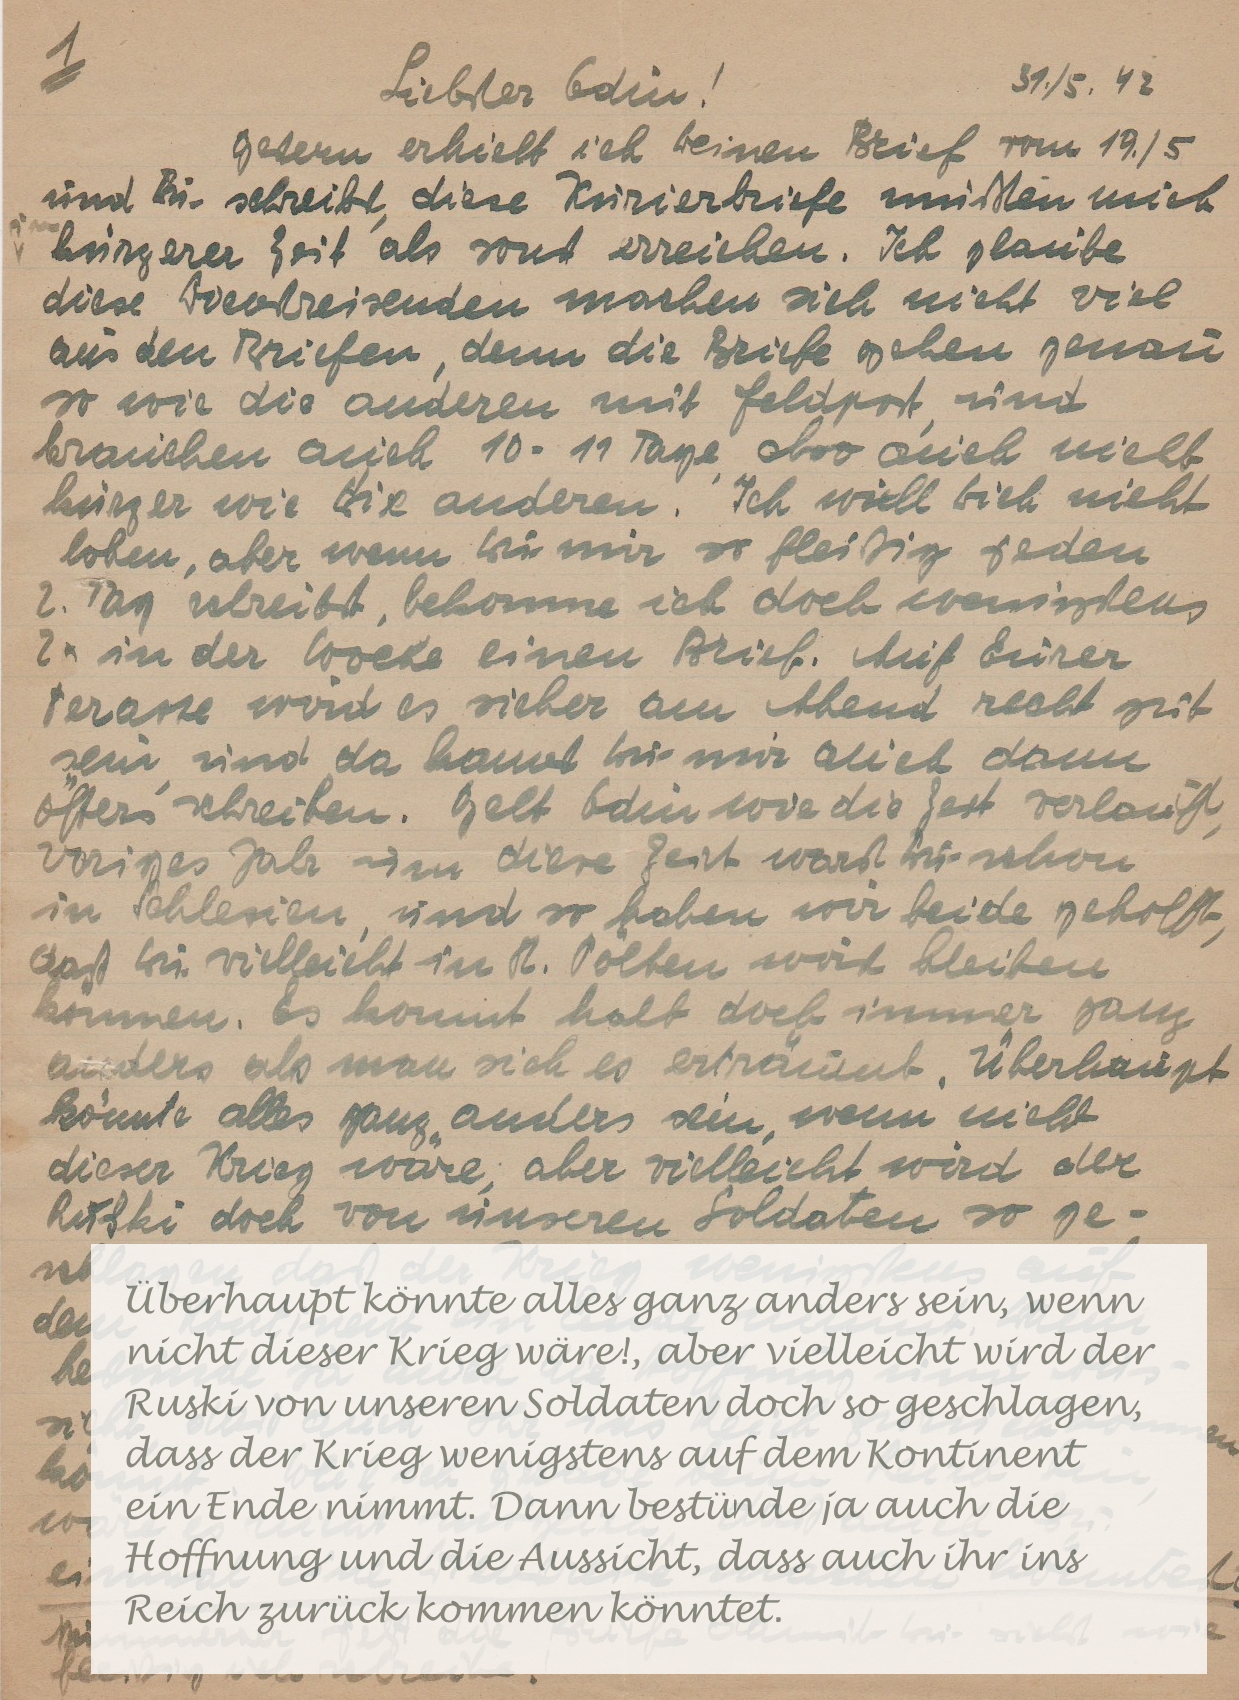 1
Liebster Edin!
31./5. 42
Gestern erhielt ich Deinen Brief vom 19./5
und Du schreibst, diese Kurierbriefe müßten mich
in
kürzerer Zeit als sonst erreichen. Ich glaube
diese Dienstreisenden machen sich nicht viel
aus den Briefen, denn die Briefe gehen genau
so wie die anderen mit Feldpost, und
brauchen auch 10-11 Tage, also auch nicht
kürzer wie die anderen. Ich will Dich nicht
loben, aber wenn Du mir so fleißig jeden
2. Tag schreibst, bekomme ich doch wenigstens
2x in der Woche einen Brief. Auf Eurer
Terasse wird es sicher am Abend recht gut
sein, und da kannst Du mir auch dann
öfters schreiben. Gelt Edin wie die Zeit verläuft,
Voriges Jahr um diese Zeit warst Du schon
in Schlesien, und so haben wir beide gehofft,
daß Du vielleicht in St. Pölten wirst bleiben
können. Es kommt halt doch immer ganz
anders als man sich es erträumt. Überhaupt
könnte alles ganz anders sein, wenn nicht
dieser Krieg wäre, aber vielleicht wird der
Rußki doch von unseren Soldaten so ge-
schlagen daß der Krieg wenigstens auf
Überhaupt könnte alles ganz anders sein, wenn
nicht dieser Krieg wäre!, aber vielleicht wird der
Ruski von unseren Soldaten doch so geschlagen,
dass der Krieg wenigstens auf dem Kontinent
ein Ende nimmt. Dann bestünde ja auch die
Hoffnung und die Aussicht, dass auch ihr ins
Reich zurück kommen könntet.